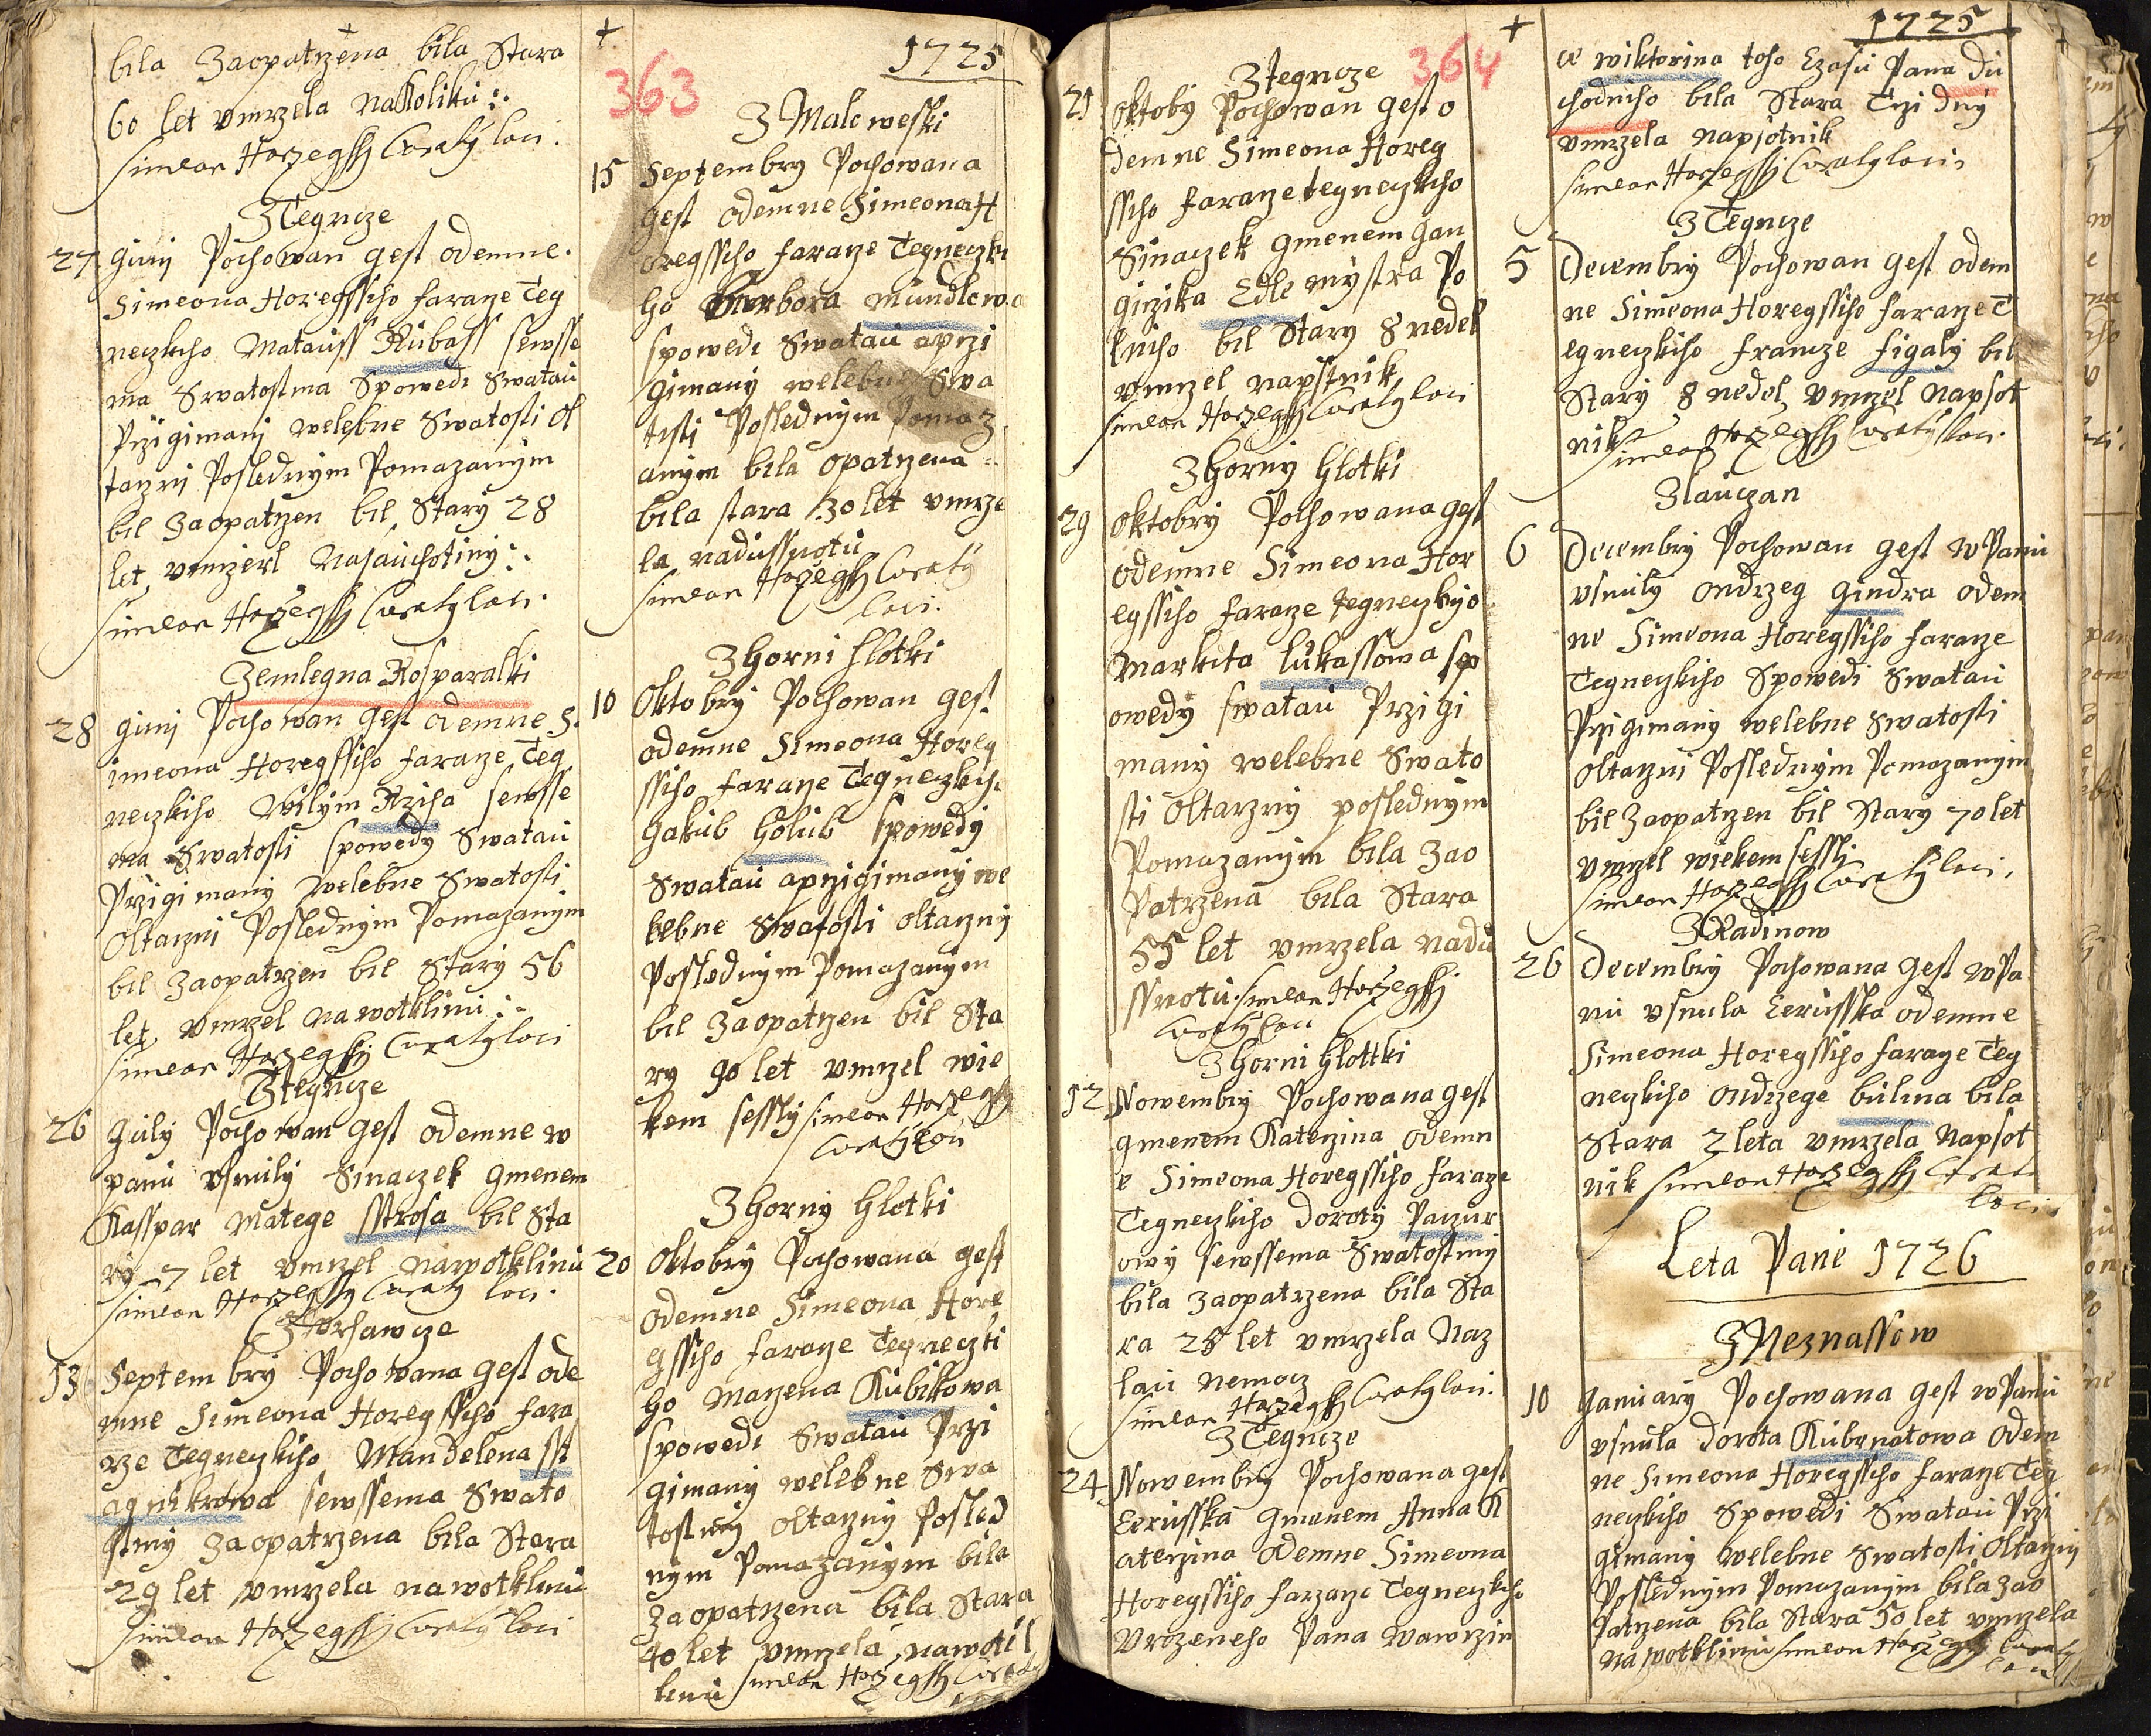 bila Zaopatrzena bila Stara
60 let vmrzela naKoliku
Simeon Horzegssy Curaty loci.
Z Tegncze
27 Juny Pochowan gest odemne
Simeona Horegssiho faraze Teg
neczkiho Matauss Kubass sewsse
ma Swatostma Spowedi Swatau
Przigimani welebne Swatosti ol
tarzni Poslednym Pomazanym
bil Zaopatrzen bil Stary 28
let vmrzerl Nasauchotiny
Simeon Horzegssy Curaty loci.
Zemlegna Kosparalski
28 Juny Pochowan gest odemne S
imeona Horegssiho faraze Teg
neczkiho Wilym Rziha sewsse
ma Swatosti Spowedy Swatau
Przigimany Welebne Swatosti
Oltarzni Poslednym Pomazanym
bil Zaopatrzen bil Stary 56
let vmrzel nawotklinu
Simeon Horzegssy Curaty loci
Z Tegncze
26 July Pochowan gest odemne w
panu vsnuly Sinaczek gmenem
Kasspar Matege sstrosa bil Sta
ry 7 let vmrzel nawotklinu
Simeon Horzegssy Curaty loci.
13 Septembry Pochowana gest ode
mne Simeona Horegssiho fara
rze Tegneczkiho Mandelena sst
agnikrowa sewssema Swato
stmy Zaopatrzena bila Stara
29 let vmrzela nawotklinu
Simeon Horzegssy Curaty loci
363
1725
Z Maleweski
15 Septembry Pochowana
gest odemne Simeona H
oregssiho faraze Tegneczki
ho Barbora mundlowa
spowedi Swatau aprzi
gimany welebne Swa
tosti Poslednym Pomaz
anym bila opatrzena
bila stara 30 let vmrze
la nadussnotu
Simeon Horzegssy Curaty
loci.
Z horni hlotki
10 Oktobry Pochowan gest
odemne Simeona Horeg
ssiho faraze Tegneczkiho
Jakub Holub Spowedy
Swatau aprzigimany we
lebne Swatosti oltarzny
Poslednym Pomazanym
bil Zaopatrzen bil Sta
ry 90 let vmrzel wie
kem sessly Simeon Horzegssy
Curaty loci
Z horny hlotki
20 Oktobry Pochowana gest
odemne Simeona Hore
gssiho faraze Tegneczki
ho Marzena Kubikowa
spowedi Swatau Przi
gimany welebne Swa
tostmy oltarzny Posled
nym Pomazanym bila
Zaopatrzena bila Stara
40 let vmrzela nawotk
linu Simeon Horzegssy Curaty
364
Z Tegncze
21 Oktoby Pochowan gest o
demne Simeona Horeg
ssiho faraze Tegneczkiho
Sinaczek gmenem Jan
Girzika Edle mystra Po
lniho bil Stary 8 nedel
vmrzel napstnik
Simeon Horzegssy Curaty loci
Z Horny hlotki
29 Oktobry Pochowana gest
odemne Simeona Hor
egssiho faraze Tegneczkyo
Markita lukassowa sp
owedy swatau Przigi
many welebne Swato
sti Oltarzny poslednym
Pomazanym bila Zao
Patrzena bila Stara
55 let vmrzela nadu
ssnotu Simeon Horzegssy
Curaty loci
Z horni hlottki
12 Nowembry Pochowana gest
gmenem Katerzina odemn
e Simeona Horegssiho faraze
Tegneczkiho doroty Paczur
owy sewssema Swatostmy
bila Zaopatrzena bila Sta
ra 28 let vmrzela Naz
lau nemocz
Simeon Horzegssy Curaty loci.
Z Tegncze
24 Nowembry Pochowana gest
Cerusska gmenem Anna K
aterzina odemne Simeona
Horegssiho farzarze Tegneczkiho
Vrozeneho Pana Wawrzin
1725
ce wiktorina toho Czasu Pana du
chodniho bila Stara Trzi dny
vmrzela napsotnik
Simeon Horzegssy Curaty loci
Z Tegncze
5 Decembry Pochowan gest odem
ne Simeona Horegssiho faraze T
egneczkiho francze figaly bil
Stary 8 nedel vmrzel Napsot
nik Simeon Horzegssy Curaty loci.
Z lauczan
6 Decembry Pochowan gest w Panu
vsnuly Ondrzeg gindra odem
ne Simeona Horegssiho faraze
Tegneczkiho Spowedi Swatau
Przigimany welebne Swatosti
Oltarzni Poslednym Pomazanym
bil Zaopatrzen bil Stary 70 let
vmrzel wiekem sessly
Simeon Horzegssy Curaty loci.
Z Radinow
26 Decembry Pochowana gest w Pa
nu vsnula Cerusska odemne
Simeona Horegssiho faraze Teg
neczkiho Ondrzege bulina bila
Stara 2 leta vmrzela Napsot
nik Simeon Horzegssy Curaty
loci
Leta Pane 1726
Z Neznassow
10 January Pochowana gest w Panu
vsnula dorota Kubrnatowa odem
ne Simeona Horegssiho faraze Teg
neczkiho Spowedi Swatau Przi
gimany welebne Swatosti Oltarzny
Poslednym Pomazanym bila Zao
Patrzena bila Stara 50 let vmrzela
na wotklinu Simeon Horzegssy Curaty
loci